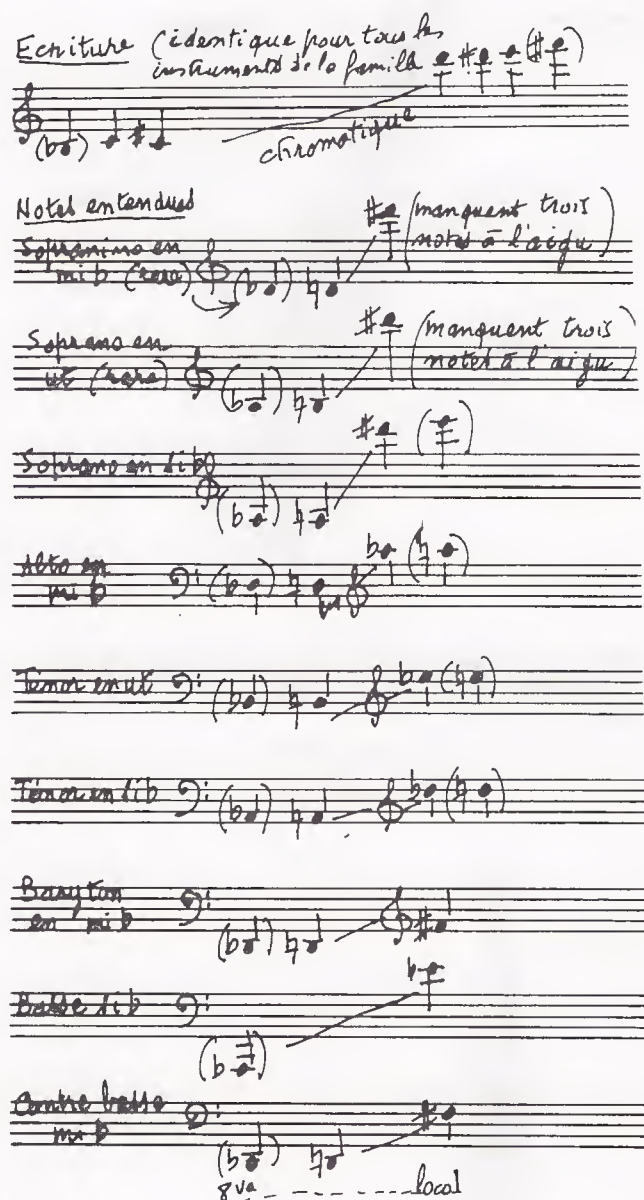 Ecriture (identique pour tous les
instruments de la famille
(♭) ♯ ♯ (♯)
chromatique
Notes entendues
Sopranino en
mi♭ (rare)
(manquent trois
notes à l'aigu)
Soprano en
ut (rare)
(manquent trois
notes à l'aigu)
Soprano en si♭
Alto en
mi♭
Ténor en ut
Ténor en si♭
Baryton
en mi♭
Basse si♭
Contre basse
mi♭
8va - - - - - - local